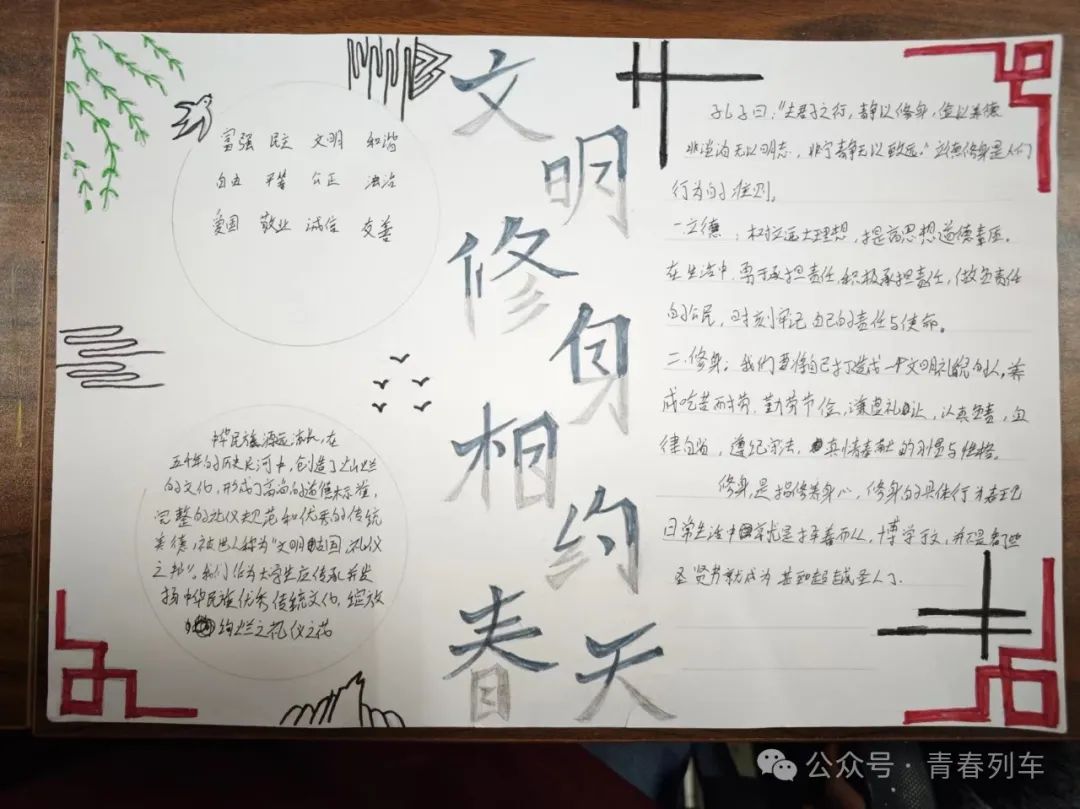 文明修身相约春天
富强 民主 文明 和谐
自由 平等 公正 法治
爱国 敬业 诚信 友善
中华民族源远流长,在
五千年的历史长河中,创造了灿烂
的文化,形成了高尚的道德标准,
完整的礼仪规范和优秀的传统
美德,被世人称为"文明古国,礼仪
之邦"。我们作为大学生应传承并发
扬中华民族优秀传统文化,绽放
绚烂之礼仪之花
孔子曰:"夫君子之行,静以修身,俭以养德
非淡泊无以明志,非宁静无以致远。"立德修身是人们
行为的准则。
一立德:树立远大理想,提高思想道德素质。
在生活中勇于承担责任,积极承担责任,做负责任
的公民,时刻牢记自己的责任与使命。
二.修身:我们要将自己打造成一个文明礼貌的人,养
成吃苦耐劳、勤劳节俭,谦虚礼让,认真负责,自
律自省,遵纪守法,真情奉献的习惯与性格。
修身,是指修养身心,修身的具体行为表现
日常生活中就是择善而从,博学于文,并不是都些
圣贤 成为 甚和超越圣人了.
公众号·青春列车